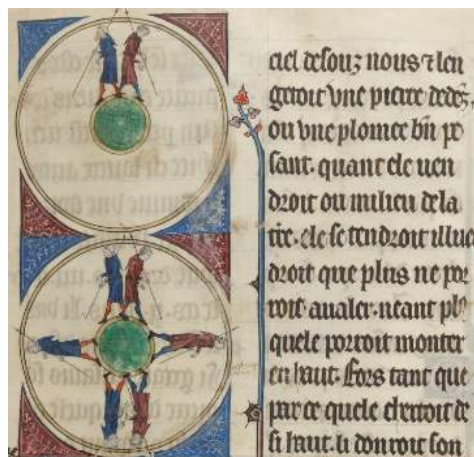 ciel desouz nous ⁊ len
getoit vne pierre dedez
ou vne plomee bn pe
sant. quant ele uen
droit ou milieu dela
tre. ele se tendroit illuec
droit que plus ne por
roit aualer. neant plꝰ
quele porroit monter
en haut. Fors tant que
par ce quele cherroit de
si haut. li donroit son